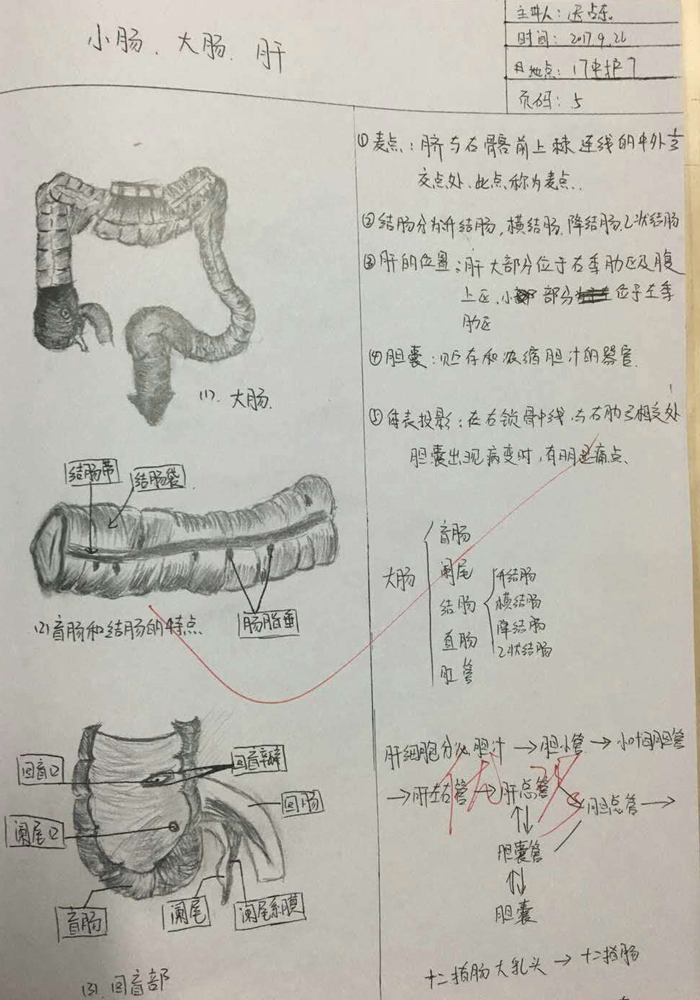 小肠、大肠、肝
主讲人:
时间: 2017.9.26
地点: 17中护7
页码: 5
①麦点:脐与右髂前上棘连线的中外⅓
交点处,此点称为麦点.
②结肠分为升结肠,横结肠,降结肠,乙状结肠
③肝的位置:肝大部分位于右季肋区及腹
上区,小部分位于左季
肋区
④胆囊:贮存和浓缩胆汁的器官.
⑤体表投影:在右锁骨中线,与右肋弓相交处
胆囊出现病变时,有明显痛点.
(1).大肠.
结肠带
结肠袋
肠脂垂
(2)盲肠和结肠的特点
大肠
盲肠
阑尾
结肠
直肠
肛管
升结肠
横结肠
降结肠
乙状结肠
回盲口
回盲瓣
回肠
阑尾口
盲肠
阑尾
阑尾系膜
(3).回盲部
肝细胞分泌胆汁→胆小管→小叶间胆管
→肝左右管→肝总管→胆总管→
胆囊管
胆囊
十二指肠大乳头→十二指肠